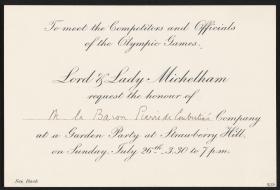 To meet the Competitors and Officials
of the Olympic Games.
Lord & Lady Michelham
request the honour of
M. le Baron Pierre de Coubertin's Company
at a Garden Party at Strawberry Hill,
on Sunday, July 26th, 3.30 to 7 p.m.
See Back